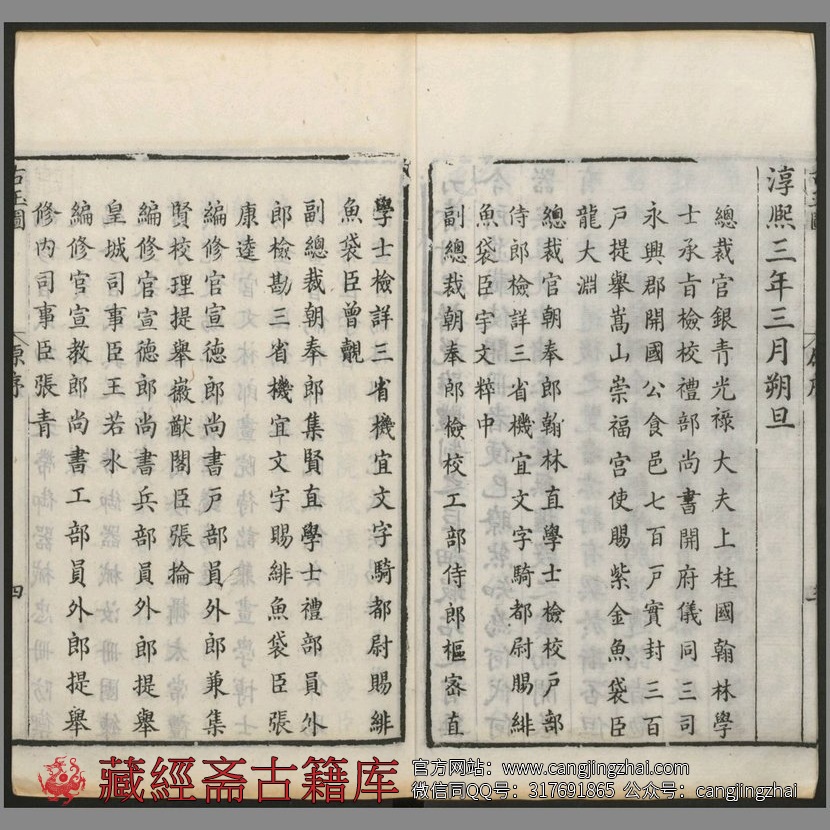 淳熙三年三月朔旦
總裁官銀青光禄大夫上柱國翰林學
士承旨檢校禮部尚書開府儀同三司
永興郡開國公食邑七百戸實封三百
戸提舉嵩山崇福宫使賜紫金魚袋臣
龍大淵
總裁官朝奉郎翰林直學士檢校戸部
侍郎檢詳三省機宜文字騎都尉賜緋
魚袋臣宇文粹中
副總裁朝奉郎檢校工部侍郎樞密直
學士檢詳三省機宜文字騎都尉賜緋
魚袋臣曾覿
副總裁朝奉郎集賢直學士禮部員外
郎檢勘三省機宜文字賜緋魚袋臣張
康逵
編修官宣德郎尚書戸部員外郎兼集
賢校理提舉徽猷閣臣張掄
編修官宣德郎尚書兵部員外郎提舉
皇城司事臣王若水
編修官宣教郎尚書工部員外郎提舉
修内司事臣張青
古玉圖
原序
四
藏經斋古籍库
官方网站：www.cangjingzhai.com
微信同QQ号：317691865 公众号：cangjingzhai